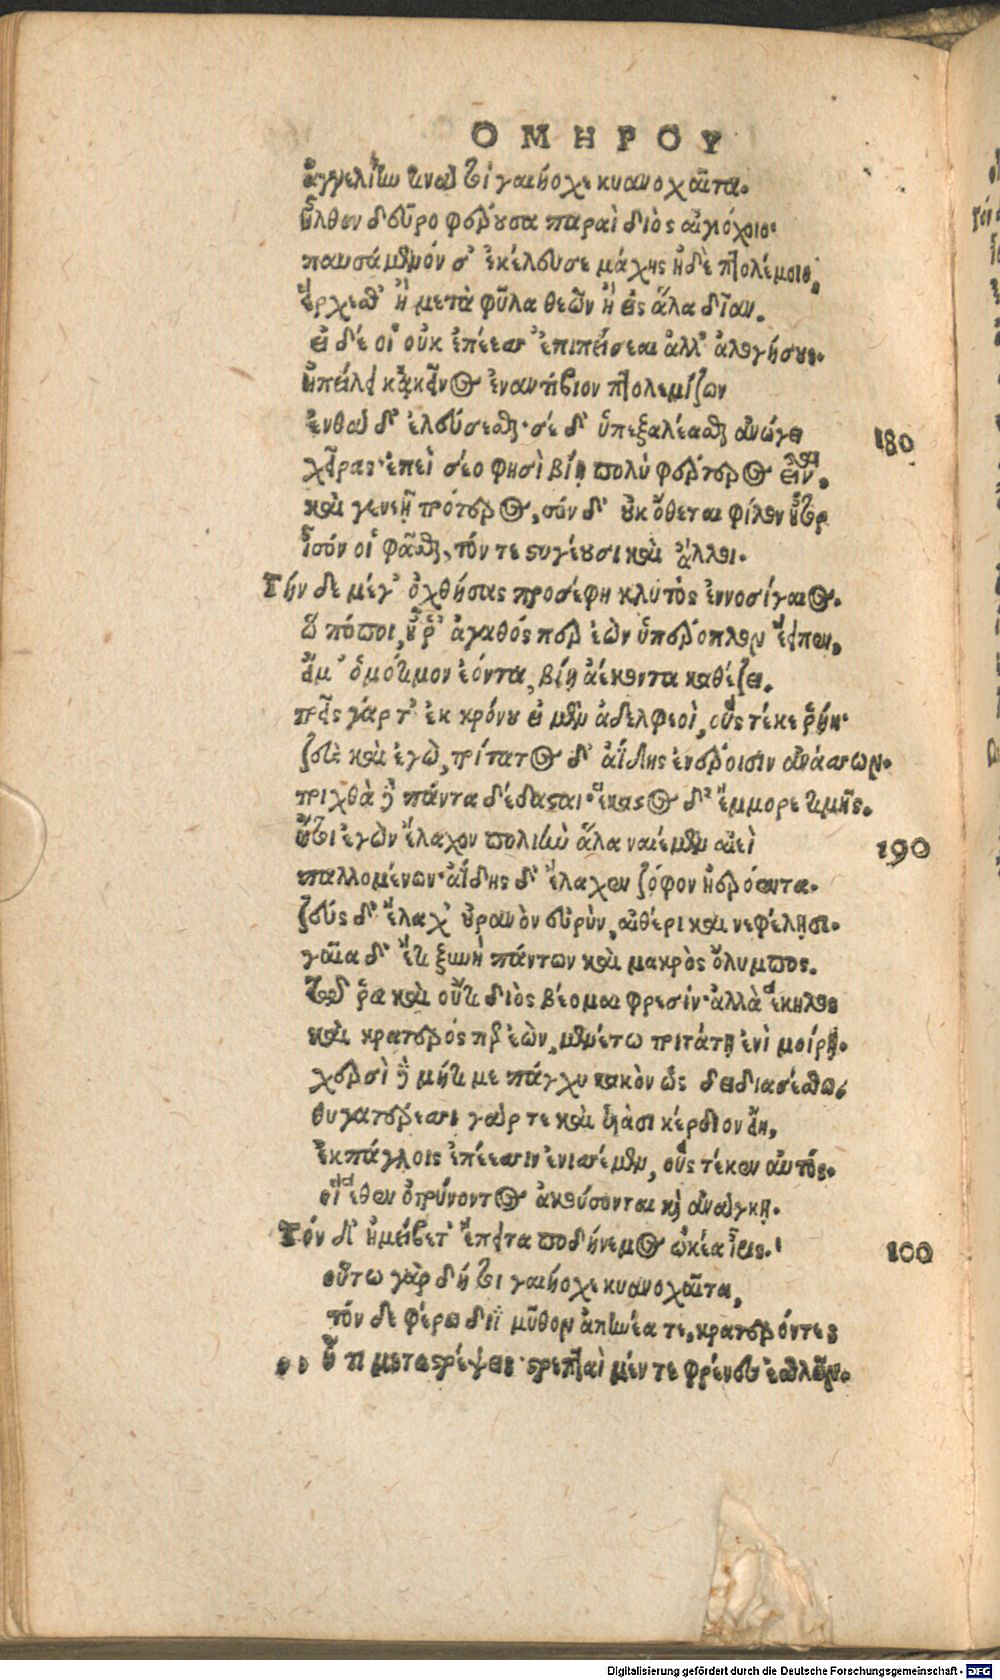 ΟΜΗΡΟΥ
ἀγγελίην τινά τοι γαιήοχε κυανοχαῖτα.
ἦλθον δεῦρο φέρουσα παραὶ διὸς αἰγιόχοιο·
παυσάμενόν σ' ἐκέλευσε μάχης ἠδὲ πτολέμοιο,
ἔρχεσθ' ἢ μετὰ φῦλα θεῶν ἢ εἰς ἅλα δῖαν.
εἰ δέ οἱ οὐκ ἐπέεσσ' ἐπιπείσεαι ἀλλ' ἀλογήσεις.
ἠπείλει κἀκεῖνος ἐναντίβιον πτολεμίζων
ἐνθάδ' ἐλεύσεσθαι· σὲ δ' ὑπεξαλέασθαι ἀνώγει
180
χεῖρας· ἐπεὶ σέο φησὶ βίῃ πολὺ φέρτερος εἶναι,
καὶ γενεῇ πρότερος, σὸν δ' οὐκ ὄθεται φίλον ἦτορ
ἶσόν οἱ φᾶσθαι, τόν τε στυγέουσι καὶ ἄλλοι.
Τὴν δὲ μέγ' ὀχθήσας προσέφη κλυτὸς ἐννοσίγαιος.
ὢ πόποι, ἦ ῥ' ἀγαθός περ ἐὼν ὑπέροπλον ἔειπεν,
εἴ μ' ὁμότιμον ἐόντα, βίῃ ἀέκοντα καθέξει.
τρεῖς γάρ τ' ἐκ κρόνου εἰμὲν ἀδελφεοὶ, οὓς τέκε ῥείη·
ζεὺς καὶ ἐγὼ, τρίτατος δ' ἀΐδης ἐνέροισιν ἀνάσσων.
τριχθὰ δὲ πάντα δέδασται· ἕκαστος δ' ἔμμορε τιμῆς.
ἤτοι ἐγὼν ἔλαχον πολιὴν ἅλα ναιέμεν αἰεὶ
190
παλλομένων· ἀΐδης δ' ἔλαχεν ζόφον ἠερόεντα.
ζεὺς δ' ἔλαχ' οὐρανὸν εὐρὺν, αἰθέρι καὶ νεφέλῃσι.
γαῖα δ' ἔτι ξυνὴ πάντων καὶ μακρὸς ὄλυμπος.
τῷ ῥα καὶ οὔτι διὸς βέομαι φρεσίν· ἀλλὰ ἕκηλος
καὶ κρατερός περ ἐὼν, μενέτω τριτάτῃ ἐνὶ μοίρῃ.
χερσὶ δὲ μήτι με πάγχυ κακὸν ὣς δειδισσέσθω,
θυγατέρεσσι γάρ τε καὶ υἱάσι κέρδιον εἴη,
ἐκπάγλοις ἐπέεσσιν ἐνισσέμεν, οὓς τέκεν αὐτός.
οἵ ἑθεν ὀτρύνοντος ἀκούσονται καὶ ἀνάγκῃ.
Τὸν δ' ἠμείβετ' ἔπειτα ποδήνεμος ὠκέα ἶρις.
100
οὕτω γὰρ δή τοι γαιήοχε κυανοχαῖτα,
τόν δε φέρω διῒ μῦθον ἀπηνέα τε, κρατερόν τε;
ἦ τι μεταστρέψεις· στρεπταὶ μέν τε φρένες ἐσθλῶν.